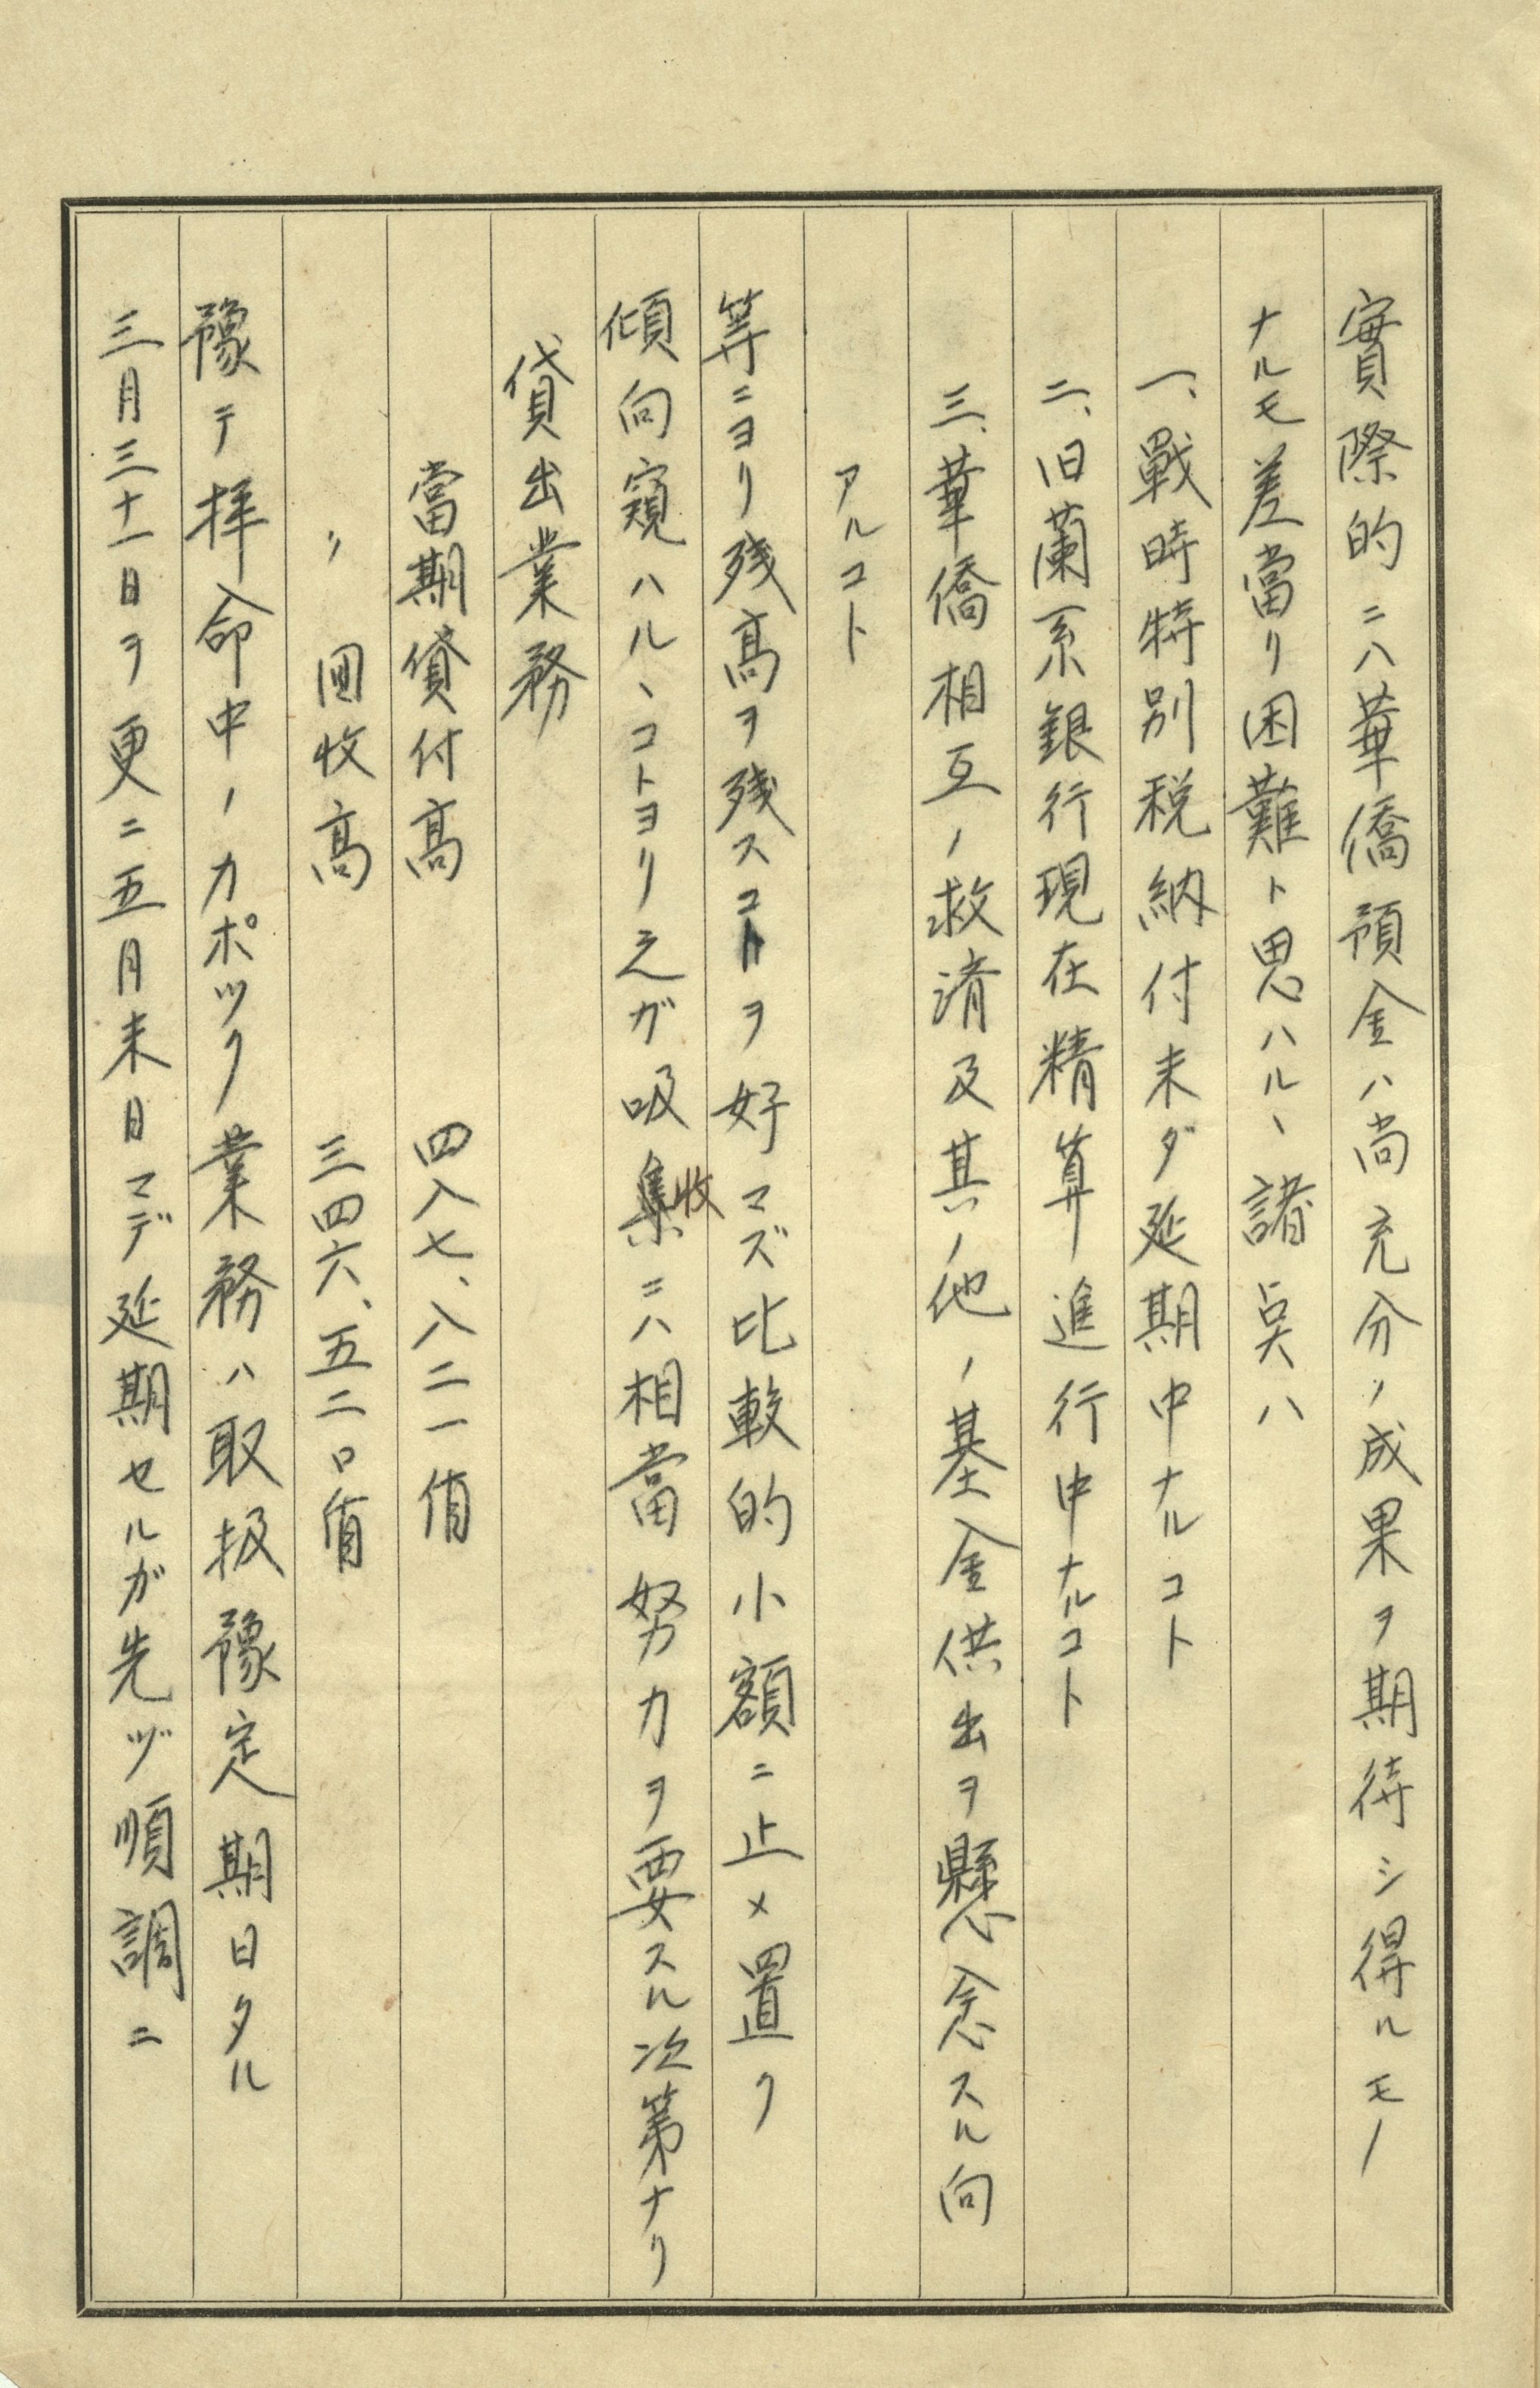 實際的ニハ華僑預金ハ尚充分ノ成果ヲ期待シ得ルモノ
ナルモ差當リ困難ト思ハルヽ諸点ハ
一、戰時特別税納付未ダ延期中ナルコト
二、旧蘭系銀行現在精算進行中ナルコト
三、華僑相互ノ救済及其ノ他ノ基金供出ヲ懸念スル向
アルコト
等ニヨリ残高ヲ残スコトヲ好マズ比較的小額ニ止メ置ク
傾向窺ハルヽコトヨリ之ガ吸集ニハ相當努力ヲ要スル次第ナリ
收
貸出業務
當期貸付高 四八七、八二一
〃 回收高 三四六、五二〇
豫テ拝命中ノカポツク業務ハ取扱豫定期日タル
三月三十一日ヲ更ニ五月末日マデ延期セルガ先ヅ順調ニ